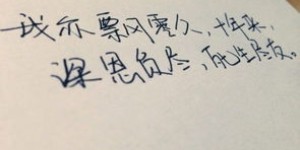 我亦飘零久，十年来，
深恩负尽，死生师友。